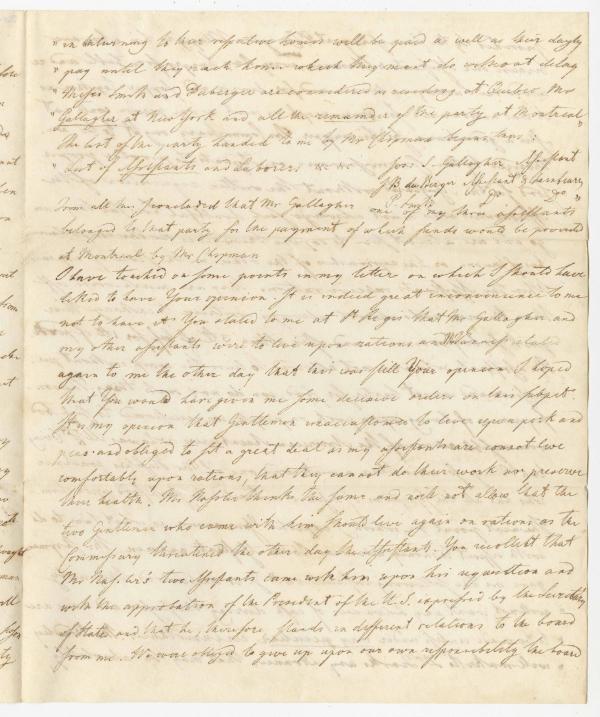 " in returning to their respective homes will be paid as well as their dayly
" pay until they reach home which they must do without delay
" Messrs Smith and Duberger are considered as residing at Quebec, Mr
" Gallagher at New York and all the remainder of the party at Montreal"
The list of the party handed to me by Mr Chipman begins thus:
" List of Assistants and Laborers &c &c Jas: S. Gallagher Assistant
J. B. duBerger Assistant
P. Smith Do Do "
from all this I concluded that Mr Gallagher one of my three assistants
belonged to that party for the payment of which funds would be provided
at Montreal by Mr Chipman
I have touched on some points in my letter on which I should have
liked to have Your opinion. It is indeed great inconvenience to me
not to have it. You stated to me at St Regis that Mr Gallagher and
my other assistants were to live upon rations and related
again to me the other day that this was still Your opinion I hoped
that You would have given me some decisive orders on this subject.
It is my opinion that Gentlemen unaccustomed to live upon pork and
peas and obliged to a great deal as my assistants are cannot live
comfortably upon rations, that they cannot do their work nor preserve
their health. Mr Hassler thinks the same and will not allow that the
two Gentlemen who came with him should live again on rations as the
Commissary threatened the other day the Assistants. You recollect that
Mr Hassler's two Assistants came with him upon his requisition and
with the approbation of the President of the U.S. expressed by the Secretary
of State and that he, therefore stands in different relations to the board
from me. We were obliged to give up upon our own responsibility the board